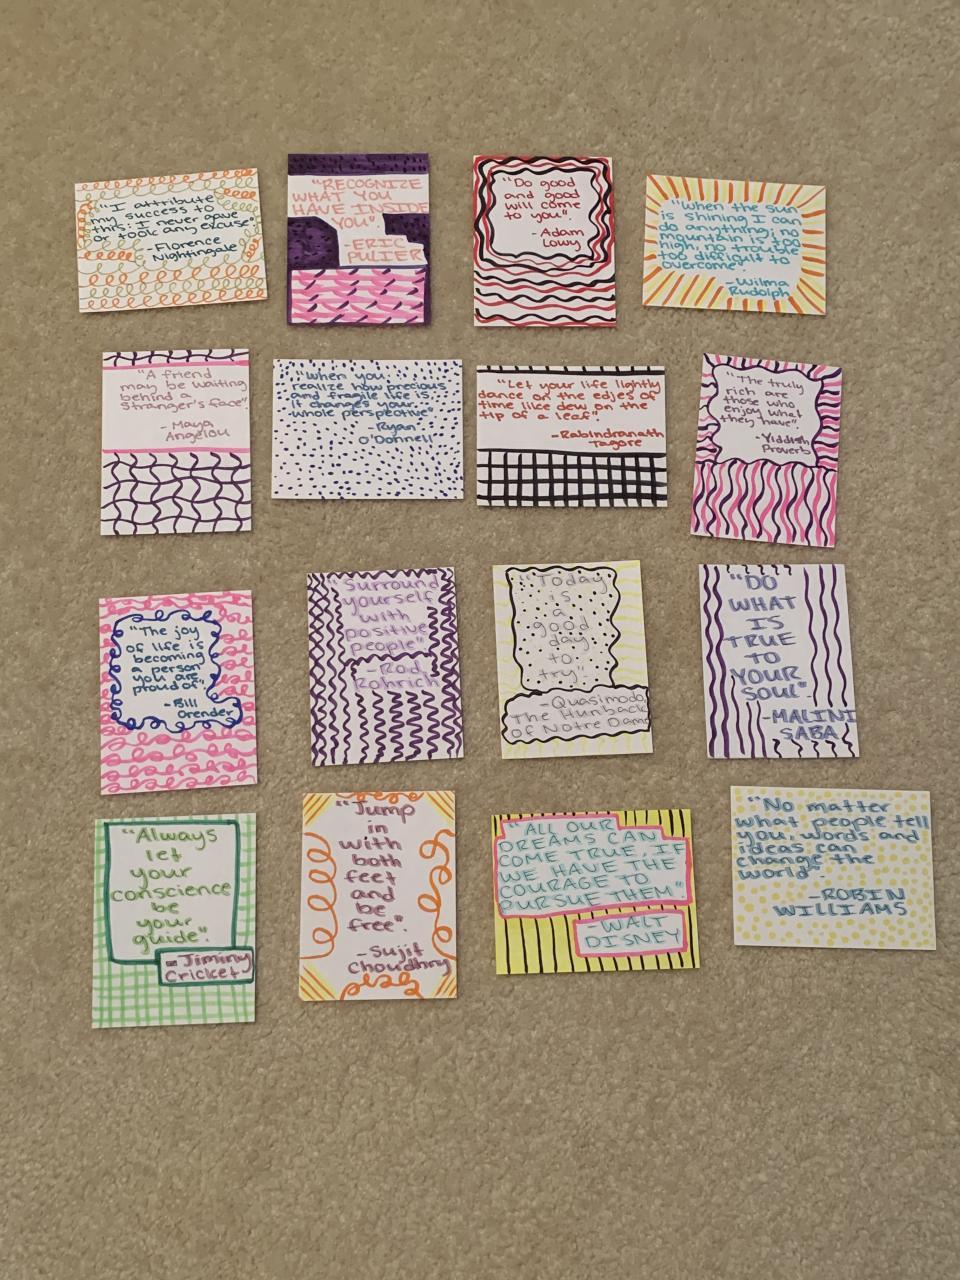 "I attribute
my success to
this: I never gave
or took any excuse".
-Florence
Nightingale
"RECOGNIZE
WHAT YOU
HAVE INSIDE
YOU".
-ERIC
PULIER
"Do good
and good
will come
to you".
-Adam
Lowy
"When the sun
is shining I can
do anything; no
mountain is too
high, no trouble
too difficult to
overcome".
-Wilma
Rudolph
"A friend
may be waiting
behind a
stranger's face".
-Maya
Angelou
"When you
realize how precious
and fragile life is,
it changes your
whole perspective".
-Ryan
O'Donnell
"Let your life lightly
dance on the edjes of
time like dew on the
tip of a leaf".
-Rabindranath
Tagore
"The truly
rich are
those who
enjoy what
they have".
-Yiddish
Proverb
"The joy
of life is
becoming
a person
you are
proud of".
-Bill
Orender
"Surround
yourself
with
positive
people".
-Rod
Rohrich
"Today
is
a
good
day
to
try".
-Quasimodo,
The Hunback
of Notre Dame
"DO
WHAT
IS
TRUE
TO
YOUR
SOUL".
-MALINI
SABA
"Always
let
your
conscience
be
your
guide".
-Jiminy
Cricket
"Jump
in
with
both
feet
and
be
free".
-Sujit
Choudhry
"ALL OUR
DREAMS CAN
COME TRUE, IF
WE HAVE THE
COURAGE TO
PURSUE THEM".
-WALT
DISNEY
"No matter
what people tell
you, words and
ideas can
change the
world".
-ROBIN
WILLIAMS